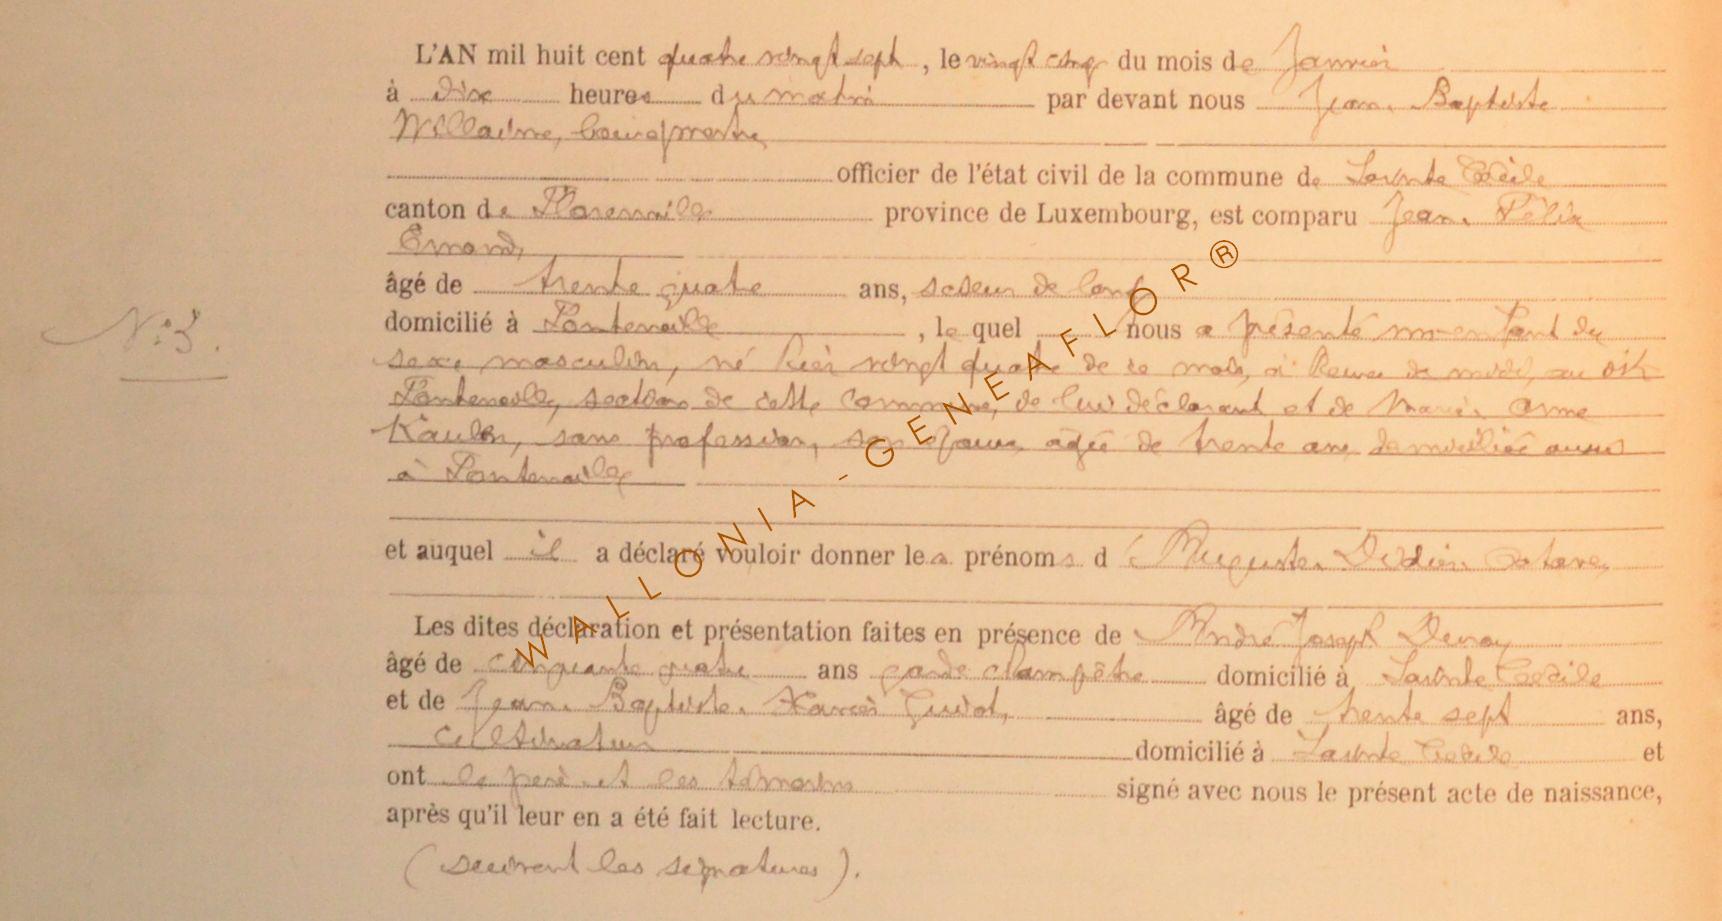 L'AN mil huit cent quatre vingt sept, le vingt cinq du mois de Janvier
à dix heures du matin par devant nous Jean Baptiste
Willaime, bourgmestre
officier de l'état civil de la commune de Sainte Cécile
canton de Florenville province de Luxembourg, est comparu Jean Félix
Emond,
âgé de trente quatre ans, scieur de long
domicilié à Fontenoille, le quel nous a présenté un enfant du
N°: 3.
sexe masculin, né hier vingt quatre de ce mois, à heures de midi, au dit
Fontenoille, section de cette commune, de lui déclarant et de Marie Anne
sans profession, son épouse âgée de trente ans domiciliée aussi
à Fontenoille
et auquel il a déclaré vouloir donner les prénoms d'Auguste Octave,
Les dites déclaration et présentation faites en présence de André Joseph
âgé de cinquante quatre ans garde champêtre domicilié à Sainte Cécile
et de Jean Baptiste Xavier Guiot, âgé de trente sept ans,
cultivateur domicilié à Sainte Cécile et
ont le père et les témoins signé avec nous le présent acte de naissance,
après qu'il leur en a été fait lecture.
(suivent les signatures).
WALLONIA-GENEAFLOR®